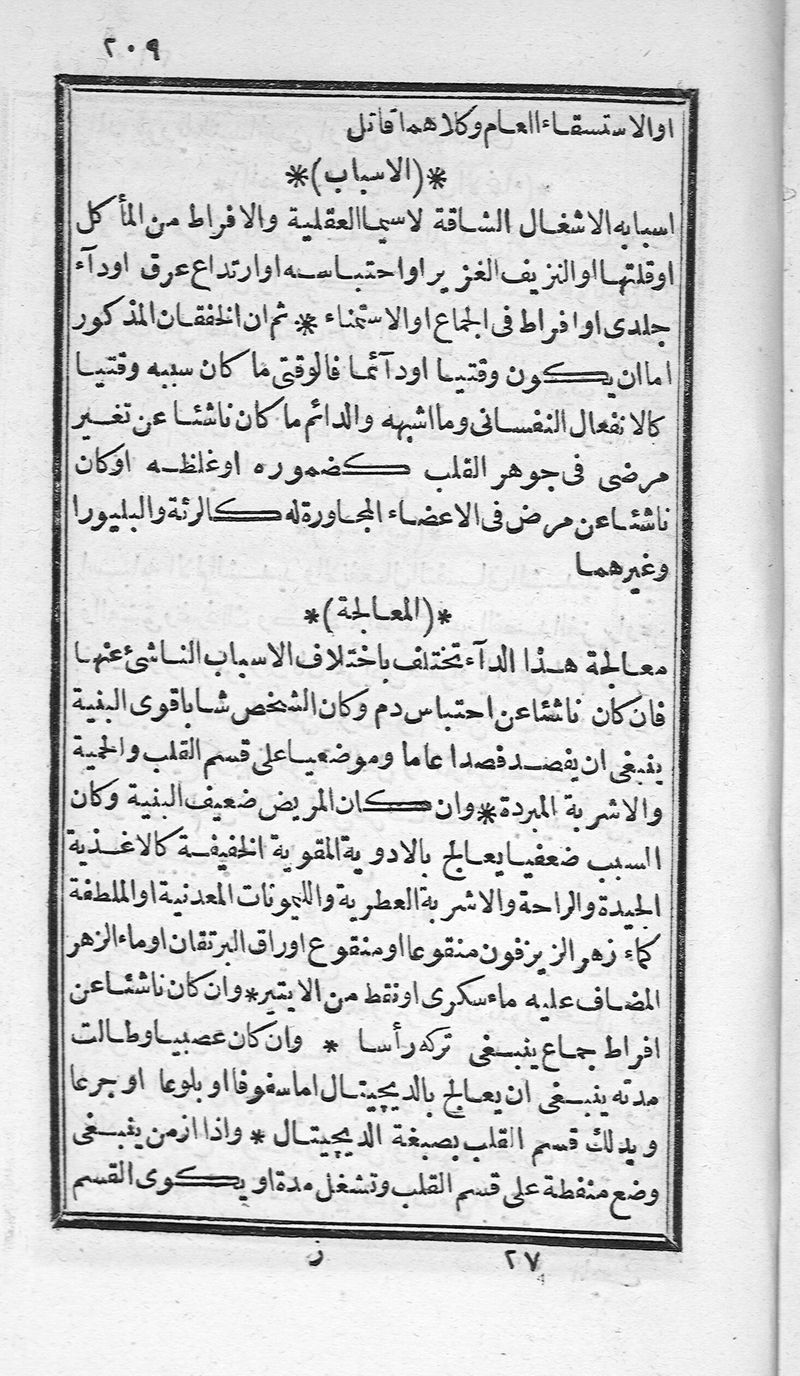 ٢٠٩
او الاستسقاء العام وكلاهما قاتل
*(الاسباب)*
اسبابه الاشغال الشاقة لاسيما العقلية والافراط من المأكل
اوقلتها او النزيف الغزير او احتباسه او ارتداع عرق او دآء
جلدى او افراط فى الجماع او الاستمناء * ثم ان الخفقان المذكور
اما ان يكون وقتيا او دآئما فالوقتى ما كان سببه وقتيا
كالانفعال النفسانى وما اشبهه والدائم ما كان ناشئا عن تغير
مرضى فى جوهر القلب كضموره او غلظه او كان
ناشئا عن مرض فى الاعضاء المجاورة له كالرئة والبليورا
وغيرهما
*(المعالجة)*
معالجة هذا الدآء تختلف باختلاف الاسباب الناشئ عنها
فان كان ناشئا عن احتباس دم وكان الشخص شابا قوى البنية
ينبغى ان يفصد فصدا عاما وموضعيا على قسم القلب والحمية
والاشربة المبردة * وان كان المريض ضعيف البنية وكان
السبب ضعفيا يعالج بالادوية المقوية الخفيفة كالاغذية
الجيدة والراحة والاشربة العطرية والليمونات المعدنية او الملطفة
كماء زهر الزيزفون منقوعا او منقوع اوراق البرتقان او ماء الزهر
المضاف عليه ماء سكرى او نقط من الايتير * وان كان ناشئا عن
افراط جماع ينبغى تركه رأسا * وان كان عصبيا وطالت
مدته ينبغى ان يعالج بالديجيتال اما سفوفا او بلوعا او جرعا
ويدلك قسم القلب بصبغة الديجيتال * واذا ازمن ينبغى
وضع منفطة على قسم القلب وتشغل مدة او يكوى القسم
٢٧ ز